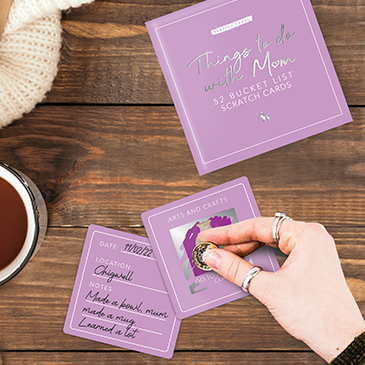 Things to do
with Mom
52 BUCKET LIST
SCRATCH CARDS
ARTS AND CRAFTS
DATE 11/02/22
LOCATION
Chigwell
NOTES
Made a bowl, mum
made a mug.
Learned a lot